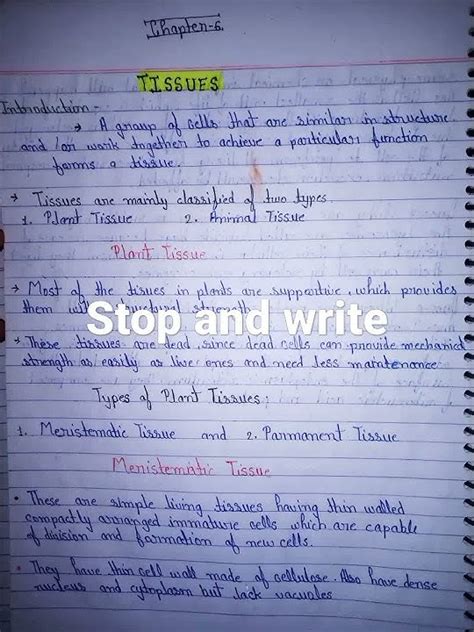 Chapter-6.
TISSUES
Introduction -
→ A group of cells that are similar in structure
and / or work together to achieve a particular function
forms a tissue.
→ Tissues are mainly classified of two types
1. Plant Tissue 2. Animal Tissue
Plant Tissue
→ Most of the tissues in plants are supportive, which provides
them with structural strength
Stop and write
→ These tissues are dead, since dead cells can provide mechanical
strength as easily as live ones and need less maintenance
Types of Plant Tissues:
1. Meristematic Tissue and 2. Parmanent Tissue
Meristematic Tissue
• These are simple living tissues having thin walled
compactly arranged immature cells which are capable
of division and formation of new cells.
• They have thin cell wall made of cellulose. Also have dense
nucleus and cytoplasm but lack vacuoles